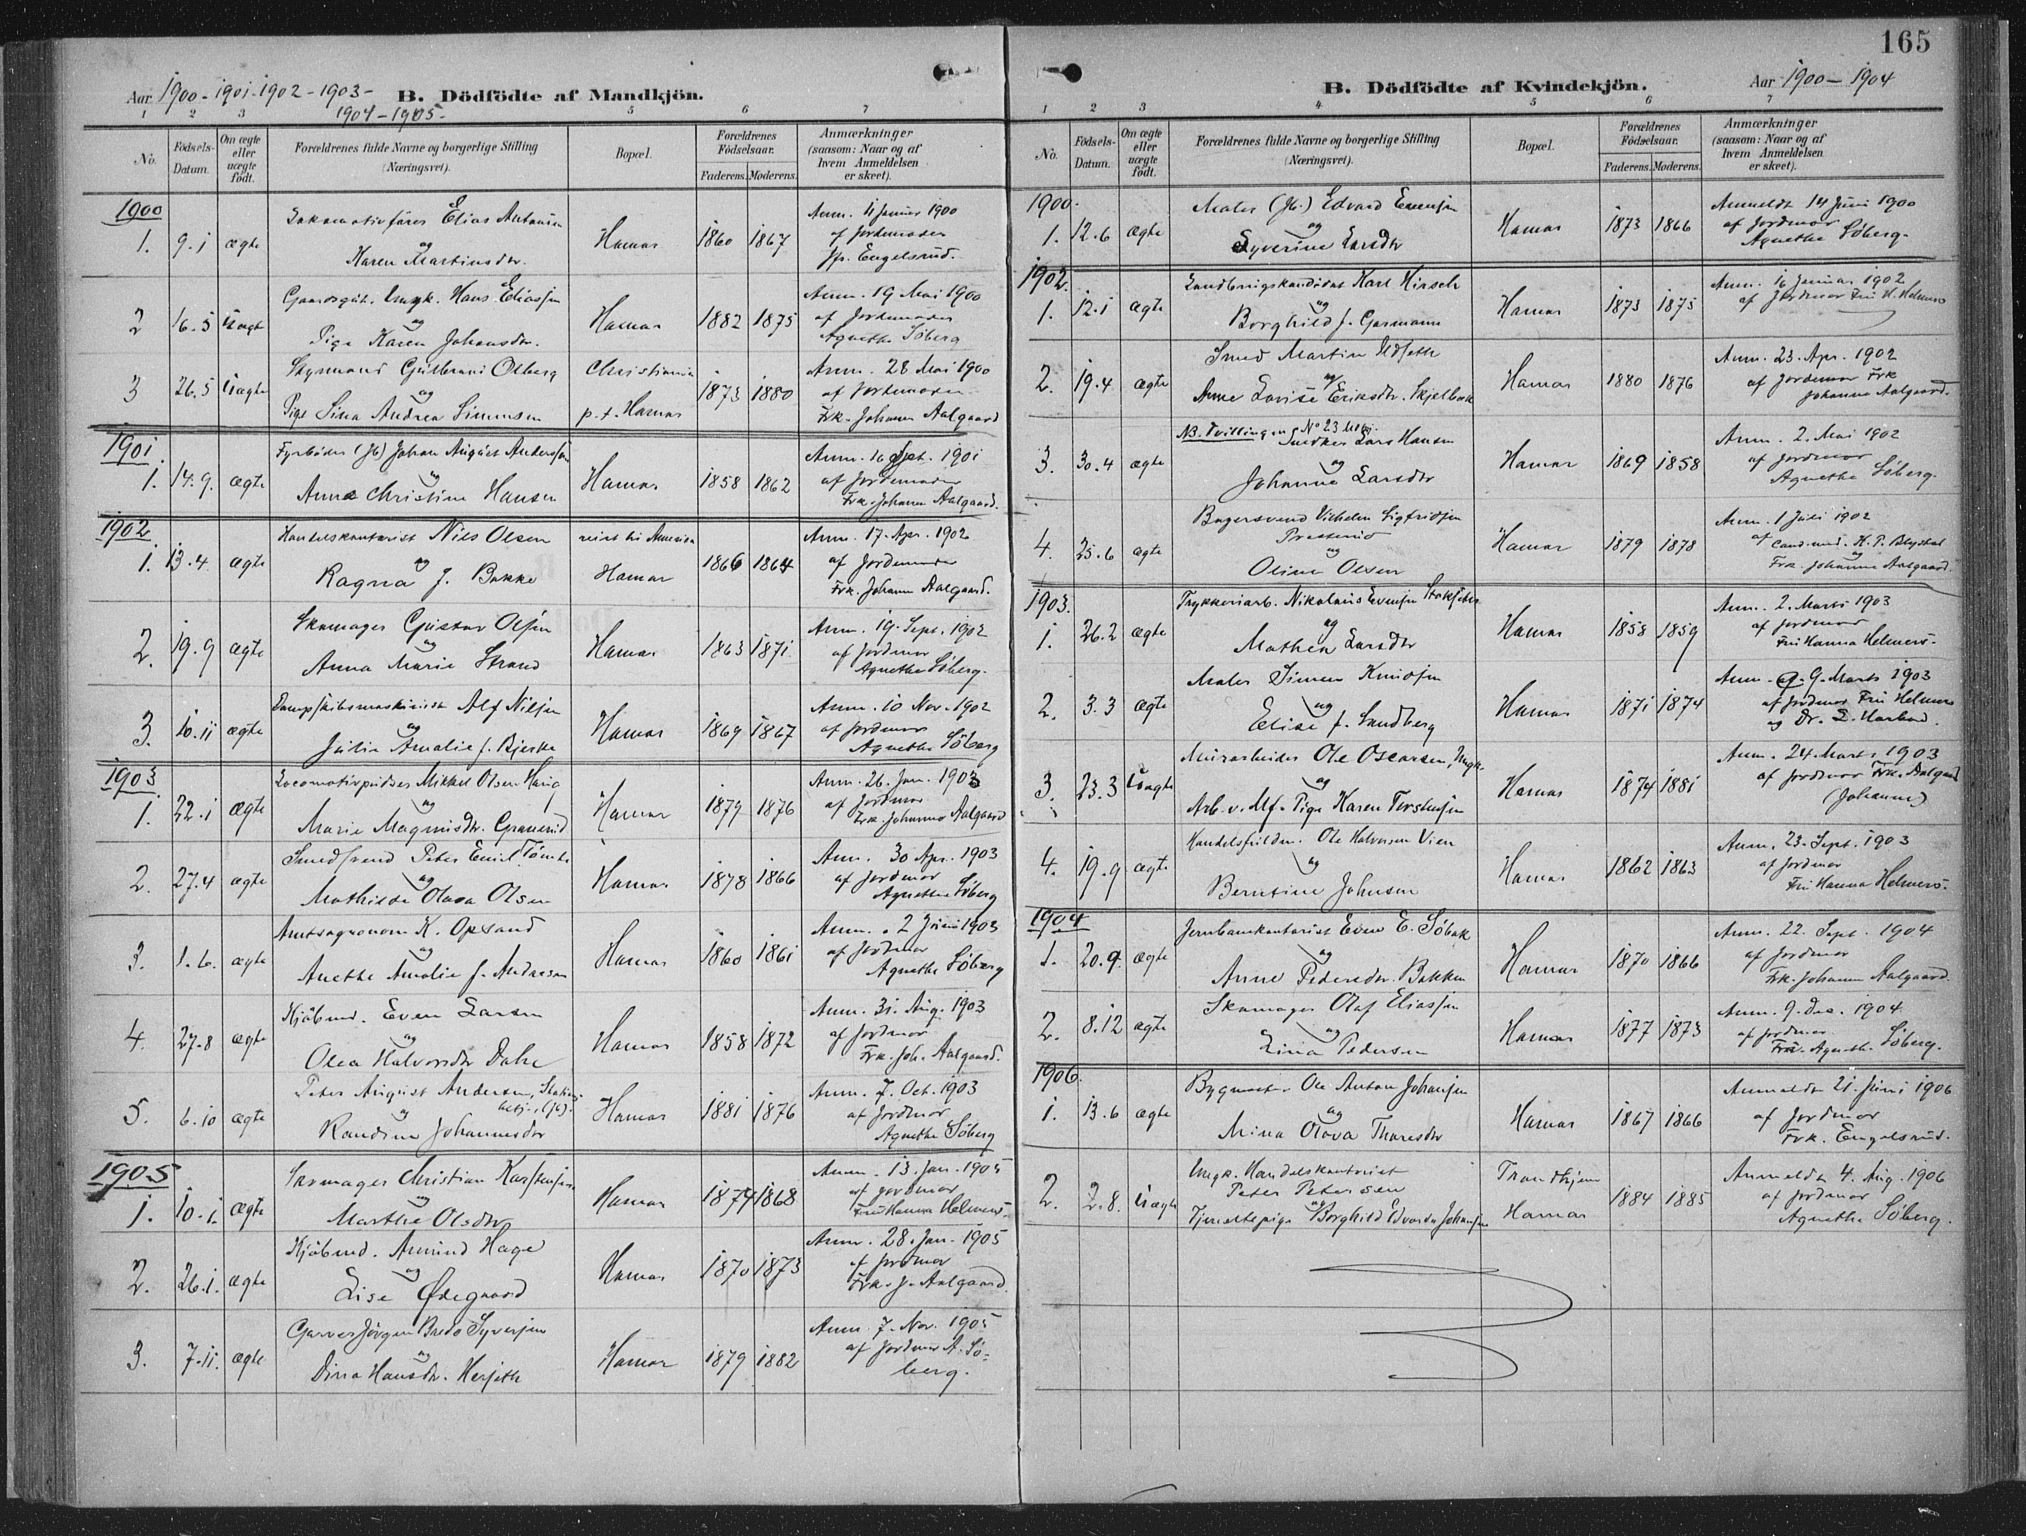 Aar 1900-1901-1902-1903-
1904-1905-
B. Dödfödte af Mandkjön.
1 2 3 5 6 7
No.
Födsels-
Datum.
Om ægte
eller
uægte
födt.
Forældrenes fulde Navne og borgerlige Stilling
(Næringsvei).
Bopæl.
Forældrenes
Födselsaar.
Faderens. Moderens.
Anmærkninger
(saasom: Naar og af
hvem Anmeldelsen
er skeet).
1900
1. 9.1 ægte
Lokomotivfører Elias Antonsen
og
Karen Martinsdtr.
Hamar 1860 1867
Anm. 11 Januar 1900
af Jordemoder
Engelsrud.
2 16.5 Uægte
Gaardsgut. Ungk. Hans Eliassen
og
Pige Karen Johansdtr.
Hamar 1882 1875
Anm. 19 Mai 1900
af Jordemoder
Agnethe Söberg
3 26.5 Uægte
Olberg
og
Pige Lina Andrea Simensen
Christiania
p.t. Hamar
1873 1880
Anm. 28 Mai 1900
af Jordemoder
Frk. Johanne Aalgaard
1901
1. 14.9. ægte
Fyrbøder (Jb) Johan August Anderssen
og
Anna Christine Hansen
Hamar 1858 1862
Anm. 16 Sept. 1901
af Jordemoder
Frk. Johanne Aalgaard.
1902
1. 13.4. ægte
Handelskontorist Nils Olsen
og
Ragna f. Bakke
reist til Amerika
Hamar
1866 1864
Anm. 17. Apr. 1902
af Jordemoder
Frk. Johanne Aalgaard.
2. 19.9 ægte
Skomager Gustav Olsen
og
Anna Marie Strand
Hamar 1863 1871.
Anm. 19. Sept. 1902
af Jordmor
Agnethe Söberg.
3. 10.11 ægte
Dampskibsmaskinist Alf Nilsen
og
Julie Amalie f. Bjerke
Hamar 1869 1867
Anm. 10 Nov. 1902
af Jordmor
Agnethe Söberg
1903
1. 22.1 ægte
Locomotivpudser Mikkel Olsen Haug
og
Marie Magnusdtr. Granerud
Hamar 1879 1876
Anm. 26. Jan. 1903
af Jordmor
Frk. Johanne Aalgaard
2. 27.4 ægte
Smedsvend Peter Emil Tömte
og
Mathilde Olava Olsen
Hamar 1878 1866
Anm. 30 Apr. 1903
af Jordmor
Agnethe Söberg
3. 1.6. ægte
Amtsagronom K. Opsand
og
Anethe Amalie f. Andresen
Hamar 1860 1861
Anm. 2 Juni 1903
af Jordmor
Agnethe Söberg
4. 27.8 ægte
Kjöbmd. Even Larsen
og
Olea Halvorsdtr Dahl
Hamar 1858 1872
Anm. 31. Aug. 1903
af Jordmor
Frk. Joh. Aalgaard.
5. 6.10 ægte
Peter August Andersen, Stations-
betj. (Jb).
og
Randine Johannesdtr
Hamar 1881 1876
Anm. 7. Oct. 1903
af Jordmor
Agnethe Söberg
1905
1. 10.1. ægte
Christian Karstensen
og
Marthe Olsdtr
Hamar 1874 1868
Anm. 13. Jan. 1905
af Jordmor
Fru Hanna Helmers.
2. 26.1. ægte
Kjöbmd. Amund Hage
og
Lise Ødegaard
Hamar 1870 1873
Anm. 28. Jan. 1905
af Jordmor
Frk. J. Aalgaard.
3. 7.11. ægte
Garver Jörgen Bredo Syversen
og
Dina Hansdtr. Hersæth
Hamar 1879 1882
Anm. 7. Nov. 1905
af Jordmor A. Sö-
berg.
165
B. Dödfödte af Kvindekjön.
Aar 1900-1904
1 2 3 4 5 6 7
No.
Födsels-
Datum.
Om ægte
eller
uægte
födt.
Forældrenes fulde Navne og borgerlige Stilling
(Næringsvei).
Bopæl.
Forældrenes
Födselsaar.
Faderens. Moderens.
Anmærkninger
(saasom: Naar og af
hvem Anmeldelsen
er skeet).
1900.
1. 12.6 ægte
Maler (Jb.) Edvard Evensen
og
Syverine Larsdtr
Hamar 1873 1866
Anmeldt 14 Juni 1900
af Jordmor
Agnethe Söberg.
1902.
1. 12.1 ægte
Landbrugskandidat Karl Hirsch
og
Borghild f. Garmann
Hamar 1873 1875
Anm. 16 Januar 1902
af Jordmor Fru H. Helmers
2. 19.4 ægte
Smed Martin Udseth
og
Anne Lovise Eriksdtr. Skjelbæk
Hamar 1880 1876
Anm. 23. Apr. 1902
af Jordmor Frk
Johanne Aalgaard.
NB. Tvilling No 23
3. 30.4 ægte
Snedker Lars Hansen
og
Johanne Larsdtr
Hamar 1869 1858
Anm. 2. Mai 1902
af Jordmor
Agnethe Söberg.
4. 25.6 ægte
Bagersvend Vilhelm Sigfridsen
Presterud
og
Oline Olsen
Hamar 1879 1878
Anm. 1 Juli 1902
af Cand. med. H. P. Blystad
og
Frk. Johanne Aalgaard.
1903.
1. 26.2 ægte
Trykkeriarb. Nikolaus Evensen Stokseter
og
Mathea Larsdtr
Hamar 1858 1859
Anm. 2. Marts 1903
af Jordmor
Fru Hanna Helmers.
2. 3.3 ægte
Maler Simen Knudsen
og
Elise f. Sandberg
Hamar 1871 1874
Anm. 9. Marts 1903
af Jordmor Fru Helmers
og Dr. D. Harbord.
3. 23.3 Uægte
Murarbeider Ole Oscarsen, Ungk.
og
Arb. v. Mf. Pige Karen Torstensen
Hamar 1874 1881
Anm. 24. Marts 1903
af Jordmor Frk. Aalgaard
(Johanne)
4. 19.9 ægte
Ole Halvorsen Vien
og
Berntine Johnsen
Hamar 1862 1863
Anm. 23. Sept. 1903
af Jordmor
Fru Hanna Helmers.
1904
1. 20.9. ægte
Jernbanekontorist Even E. Söbak
og
Anne Pedersdtr. Bakken
Hamar 1870 1866
Anm. 22. Sept. 1904
af Jordmor
Frk. Johanne Aalgaard.
2. 8.12 ægte
Skomager Olaf Eliassen
og
Lina Pedersen
Hamar 1877 1873
Anm. 9. Dec. 1904
af Jordmor
Frk. Agnethe Söberg.
1906.
1. 13.6 ægte
Bygmester Ole Anton Johansen
og
Mina Olava Thoresdtr
Hamar 1867 1866
Anmeldt 21. Juni 1906
af Jordmor
Frk. Engelsrud.
2. 2.8. Uægte
Ungk. Handelskontorist
Peter Petersen
og
Tjenestepige Borghild Edvarda Johansen
Trondhjem
Hamar
1884 1885
Anmeldt 4. Aug. 1906
af Jordmor
Agnethe Söberg.